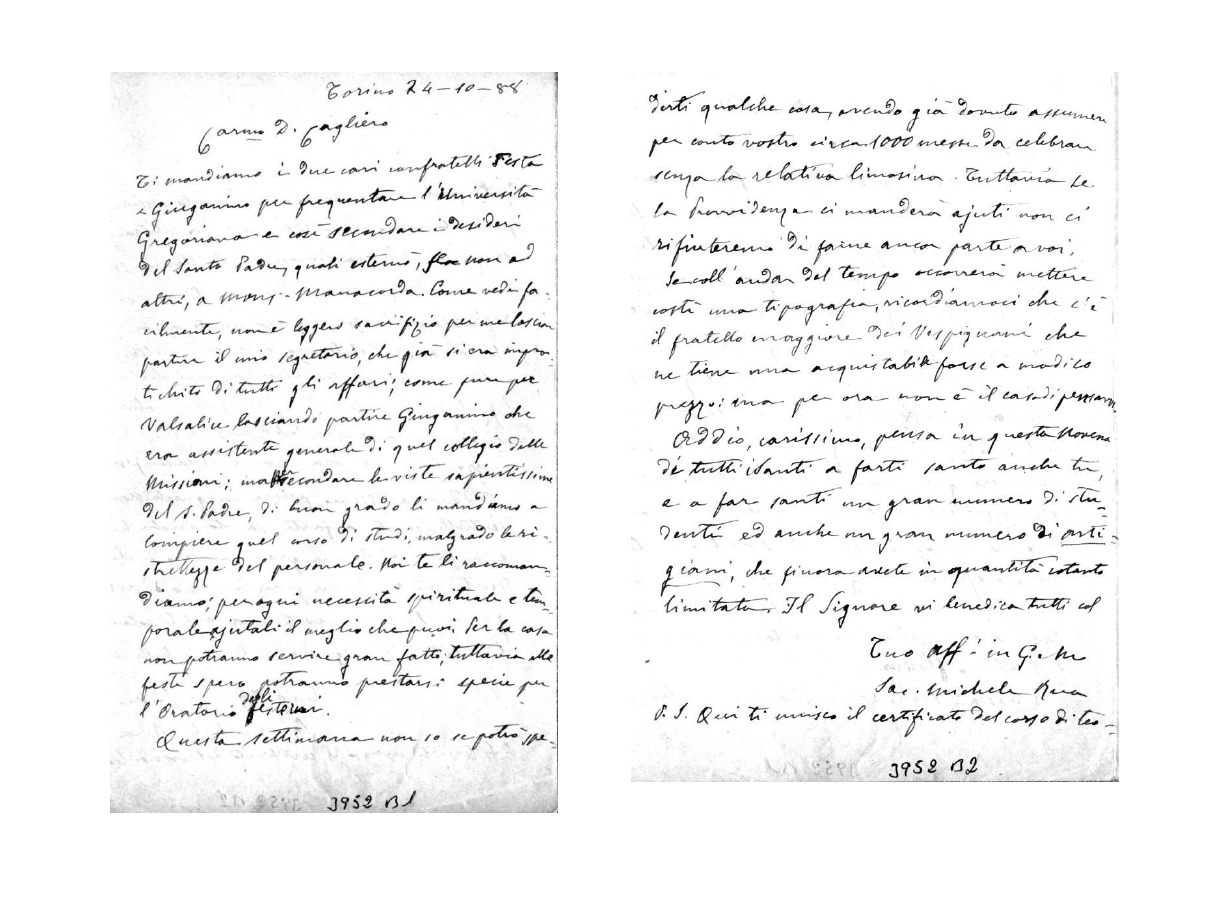 Torino 24-10-88
Carmo D. Cagliero
Ti mandiamo i due cari confratelli Festa
e Giuganino per frequentare l'Università
Gregoriana e così secondare i desideri
del Santo Padre, quali esternò, non ad
altri, a Mons. Manacorda. Come vedi fa-
cilmente, non è leggero sacrifizio per me lasciar
partire il mio segretario, che già si era impra-
tichito di tutti gli affari; come pure per
Valsalice lasciando partire Giuganino che
era assistente generale di quel collegio delle
Missioni; ma per secondare le viste sapientissime
del S. Padre, di buon grado li mandiamo a
compiere quel corso di studi, malgrado le ri-
strettezze del personale. Noi te li raccoman-
diamo; per ogni necessità spirituale e tem-
porale ajutali il meglio che puoi. Per la casa
non potranno servire gran fatto; tuttavia alle
feste spero potranno prestarsi specie per
l'Oratorio degli esterni.
Questa settimana non so se potrò spe-
3952 B1
dirti qualche cosa, avendo già dovuto assumere
per conto vostro circa 1000 messe da celebrare
senza la relativa limosina. Tuttavia se
la Provvidenza ci manderà ajuti non ci
rifiuteremo di farne ancor parte a voi.
Se coll'andar del tempo occorrerà mettere
costì una tipografia, ricordiamoci che c'è
il fratello maggiore dei Vespignani che
ne tiene una acquistabile forse a modico
prezzo: ma per ora non è il caso di pensarvi.
Addio, carissimo, pensa in questa Novena
de' tutti i Santi a farti santo anche tu,
e a far santi un gran numero di stu-
denti ed anche un gran numero di arti-
giani, che finora avete in quantità cotanto
limitata. Il Signore vi benedica tutti col
Tuo aff. in G. e M.
Sac. Michele Rua
P. S. Qui ti unisco il certificato del corso di teo-
3952 B2